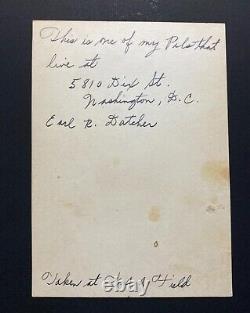 This is one of my Pals that
live at
5810 Dix St.
Washington, D.C.
Earl R. Datcher
Taken at Field
ebay